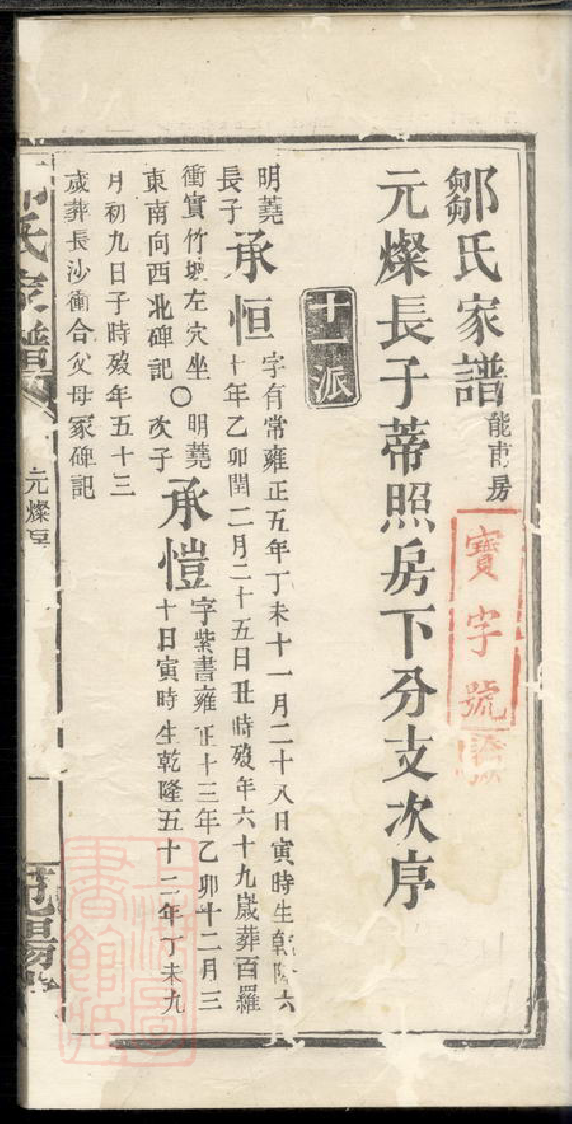 鄒氏家譜 能甫房
寶字號
元燦長子蒂照房下分支次序
十一派
明蕘長子承恒字有常雍正五年丁未十一月二十八日寅時生乾隆六
十年乙卯閏二月二十五日丑時歿年六十九歲葬百羅
衝實竹塽左穴坐
東南向西北碑記○明蕘次子承愷字紫書雍正十三年乙卯十二月三
十日寅時生乾隆五十二年丁未九
月初九日子時歿年五十三
歲葬長沙衝合父母冢碑記
氏家譜
元燦房